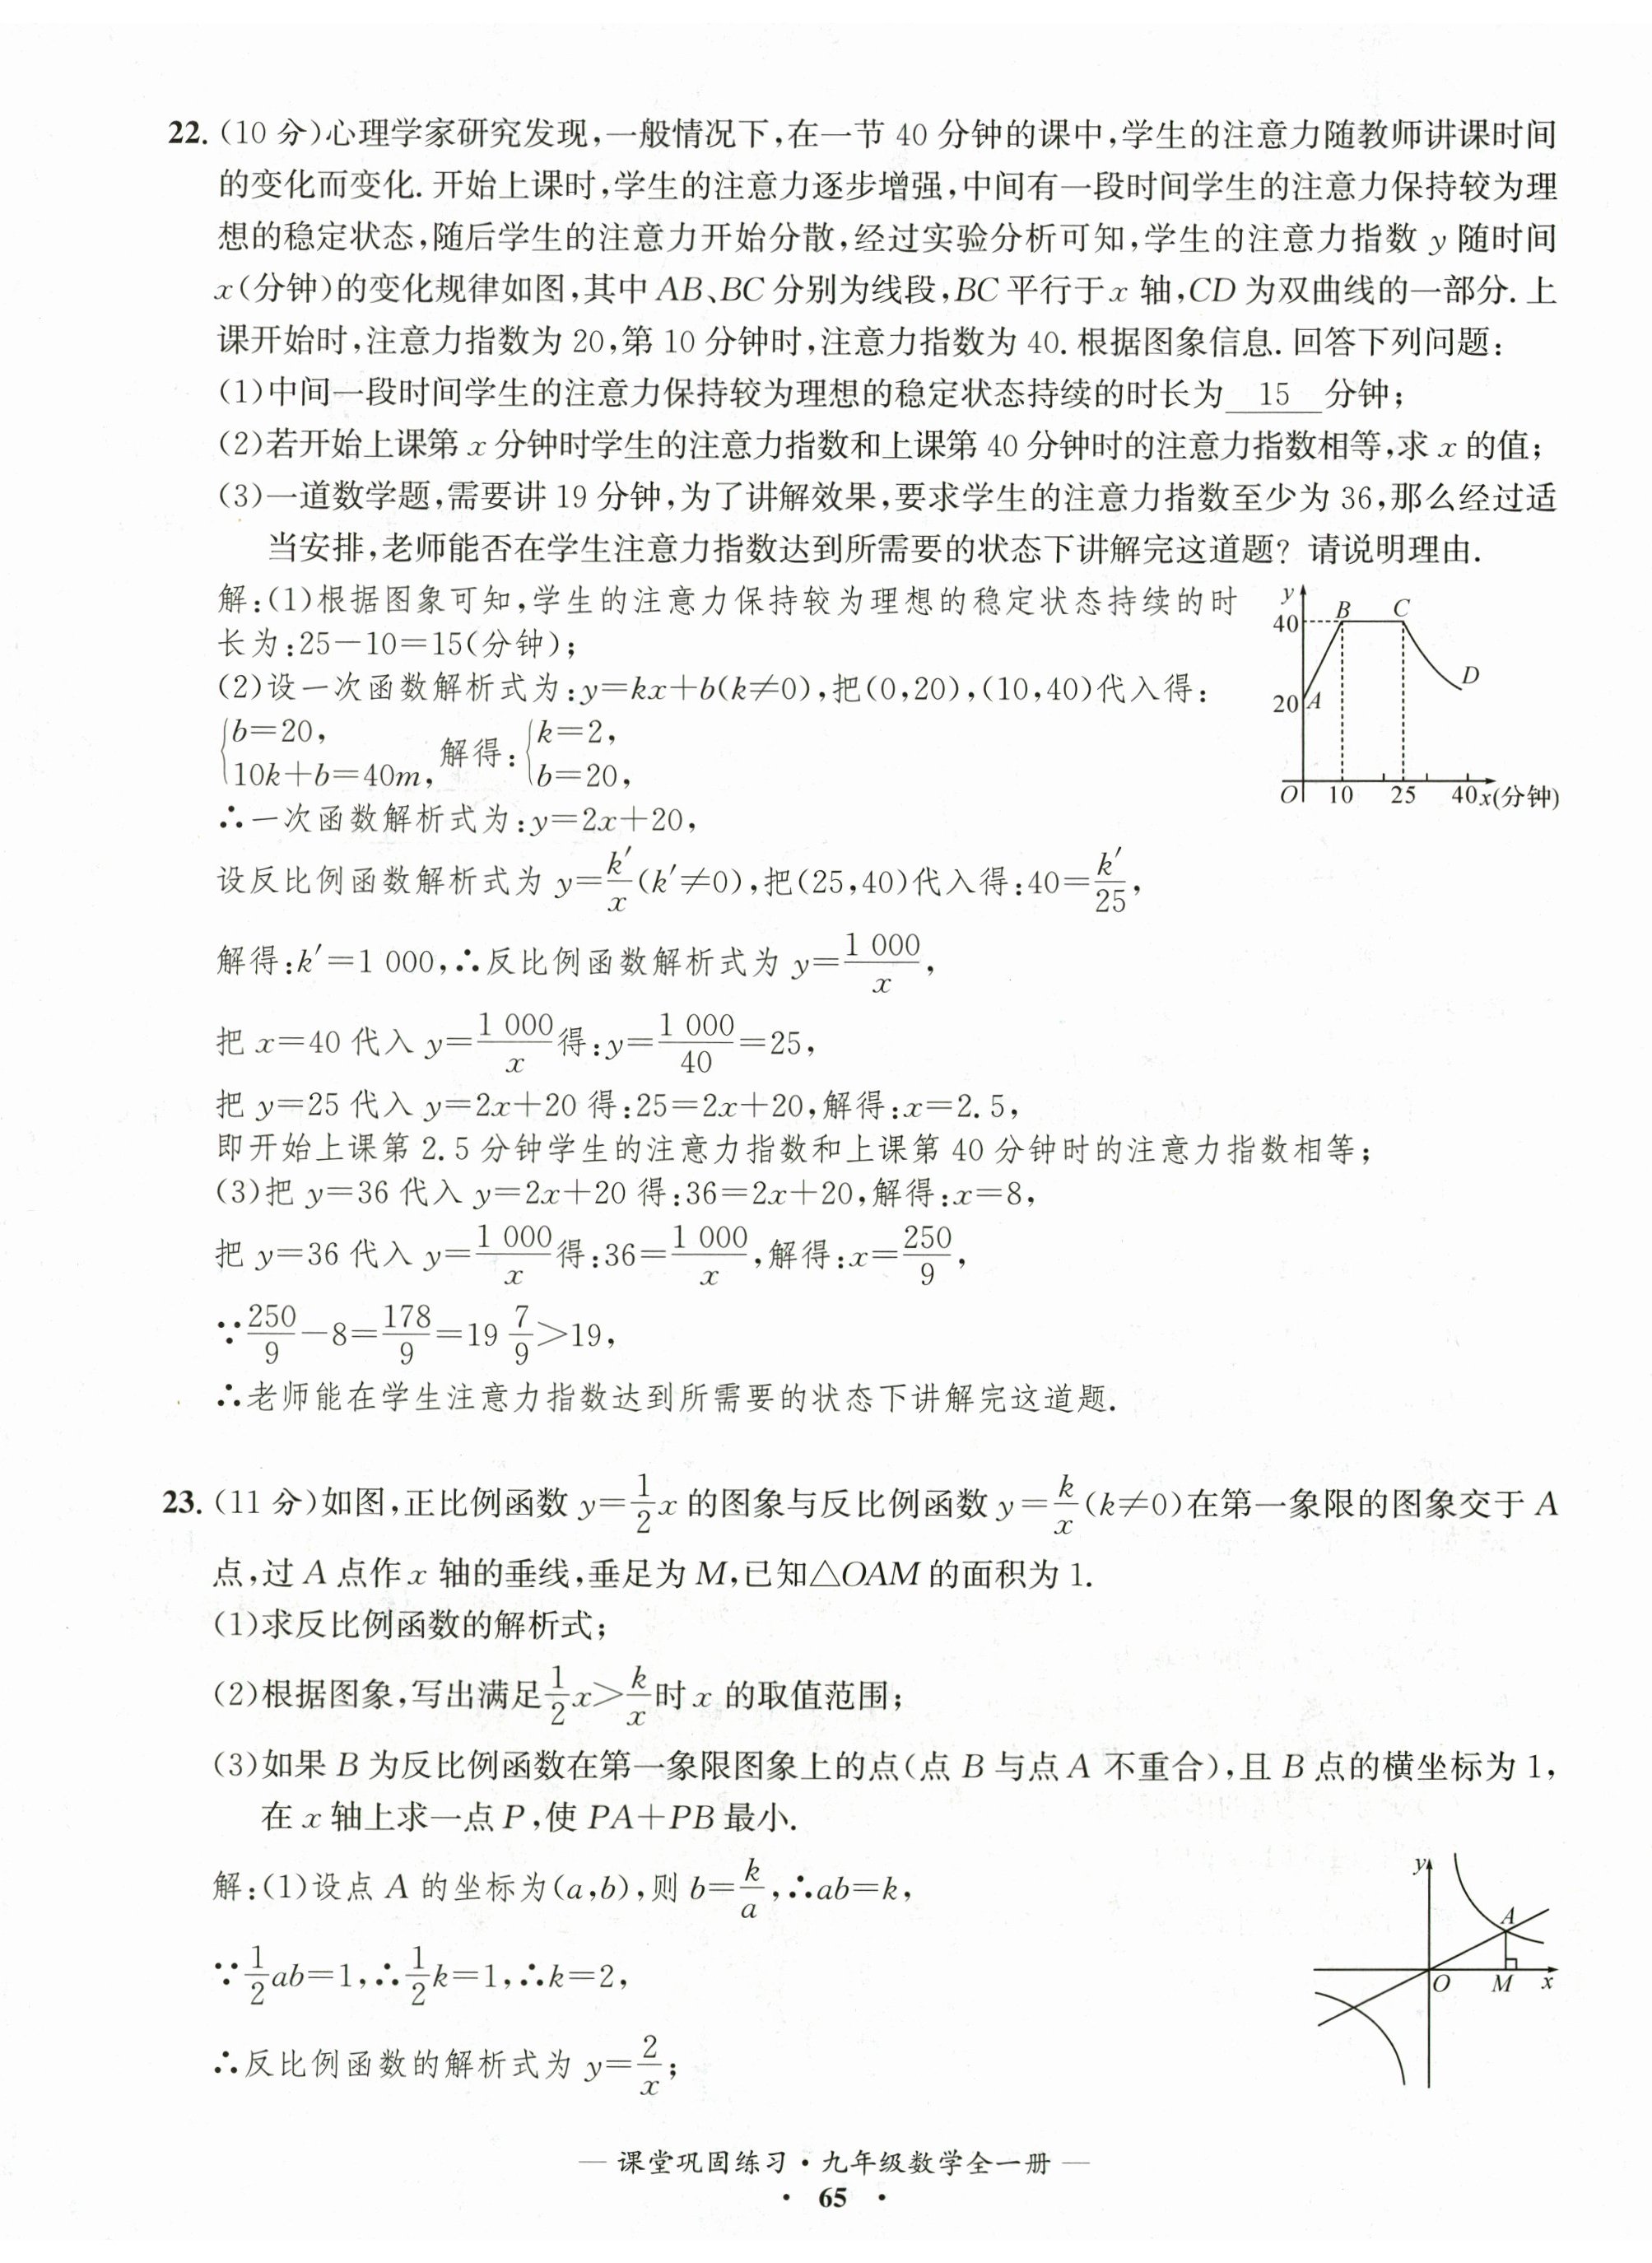 22. (10 分)心理学家研究发现,一般情况下,在一节 40 分钟的课中,学生的注意力随教师讲课时间
的变化而变化. 开始上课时,学生的注意力逐步增强,中间有一段时间学生的注意力保持较为理
想的稳定状态,随后学生的注意力开始分散,经过实验分析可知,学生的注意力指数 y 随时间
x(分钟)的变化规律如图,其中 AB、BC 分别为线段,BC 平行于 x 轴,CD 为双曲线的一部分. 上
课开始时,注意力指数为 20,第 10 分钟时,注意力指数为 40. 根据图象信息. 回答下列问题:
(1)中间一段时间学生的注意力保持较为理想的稳定状态持续的时长为 15 分钟;
(2)若开始上课第 x 分钟时学生的注意力指数和上课第 40 分钟时的注意力指数相等,求 x 的值;
(3)一道数学题,需要讲 19 分钟,为了讲解效果,要求学生的注意力指数至少为 36,那么经过适
当安排,老师能否在学生注意力指数达到所需要的状态下讲解完这道题? 请说明理由.
解:(1)根据图象可知,学生的注意力保持较为理想的稳定状态持续的时
长为:25-10=15(分钟);
(2)设一次函数解析式为:y=kx+b(k≠0),把(0,20),(10,40)代入得:
{b=20, 10k+b=40m, 解得:{k=2, b=20,
∴一次函数解析式为:y=2x+20,
设反比例函数解析式为 y=k′/x(k′≠0),把(25,40)代入得:40=k′/25,
解得:k′=1 000,∴反比例函数解析式为 y=1 000/x,
把 x=40 代入 y=1 000/x得:y=1 000/40=25,
把 y=25 代入 y=2x+20 得:25=2x+20,解得:x=2.5,
即开始上课第 2.5 分钟学生的注意力指数和上课第 40 分钟时的注意力指数相等;
(3)把 y=36 代入 y=2x+20 得:36=2x+20,解得:x=8,
把 y=36 代入 y=1 000/x得:36=1 000/x,解得:x=250/9,
∵250/9-8=178/9=19 7/9>19,
∴老师能在学生注意力指数达到所需要的状态下讲解完这道题.
y
40
B
C
D
20
A
O
10
25
40
x(分钟)
23. (11 分)如图,正比例函数 y=1/2x 的图象与反比例函数 y=k/x(k≠0)在第一象限的图象交于 A
点,过 A 点作 x 轴的垂线,垂足为 M,已知△OAM 的面积为 1.
(1)求反比例函数的解析式;
(2)根据图象,写出满足1/2x>k/x时 x 的取值范围;
(3)如果 B 为反比例函数在第一象限图象上的点(点 B 与点 A 不重合),且 B 点的横坐标为 1,
在 x 轴上求一点 P,使 PA+PB 最小.
解:(1)设点 A 的坐标为(a,b),则 b=k/a,∴ab=k,
∵1/2ab=1,∴1/2k=1,∴k=2,
∴反比例函数的解析式为 y=2/x;
y
A
O
M
x
— 课堂巩固练习·九年级数学全一册 —
· 65 ·